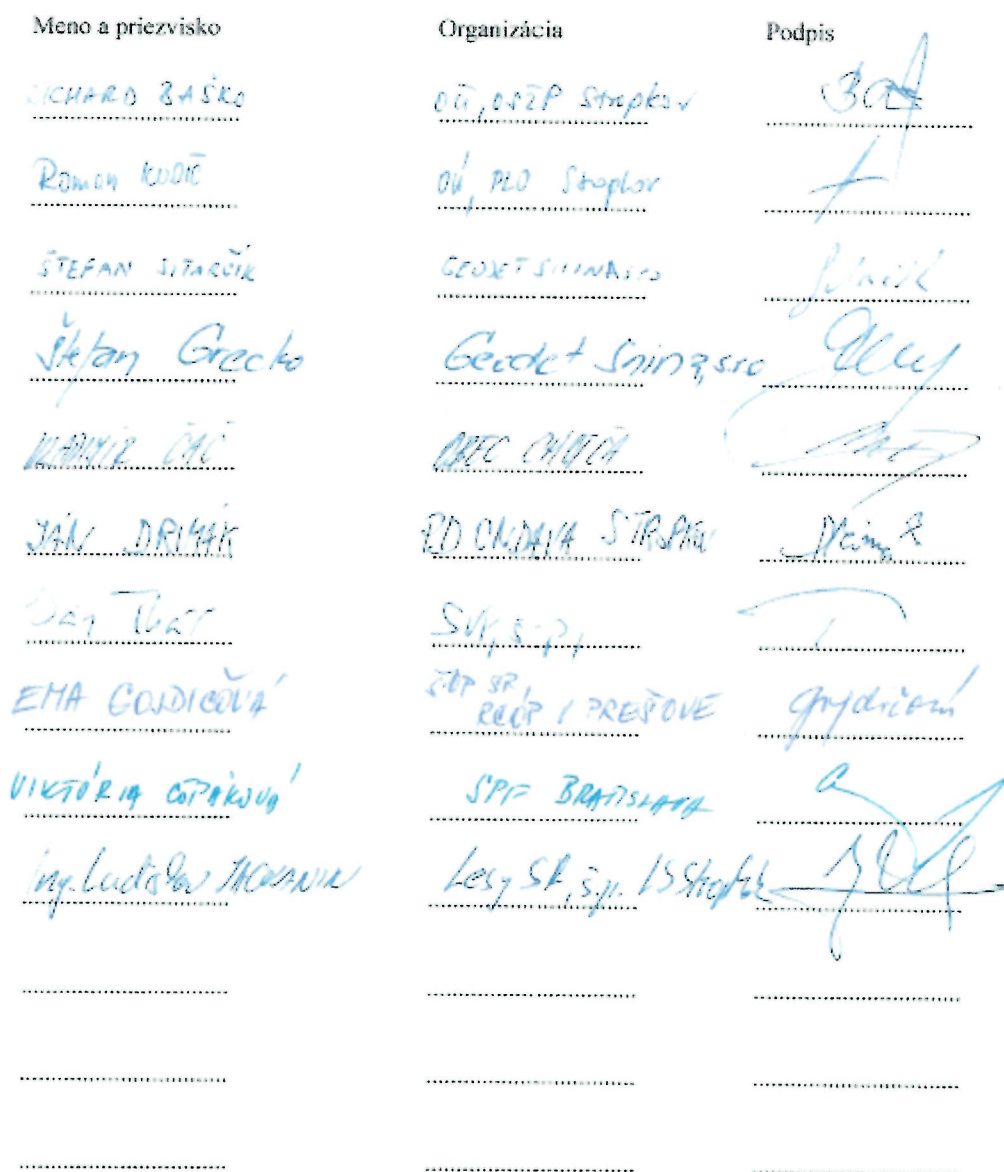 Meno a priezvisko Organizácia Podpis
RICHARD BAŠKO OÚ, OSŽP Stropkov
Roman KUDIČ OÚ, PLO Stropkov
ŠTEFAN SITARČÍK GEODET SNINA s.r.o
Štefan Grecko Geodet Snina, sro
VLADIMÍR ČAČ OBEC CHOTČA
JÁN DRIMÁK RD ONDAVA STROPKOV
Ján SVP, š.p.,
EMA GOJDIČOVÁ ŠOP SR, Gojdičová
RCOP V PREŠOVE
VIKTÓRIA COPÁKOVÁ SPF BRATISLAVA
Ing. Ladislav JACKANIN Lesy SR, š.p. LS Stropkov